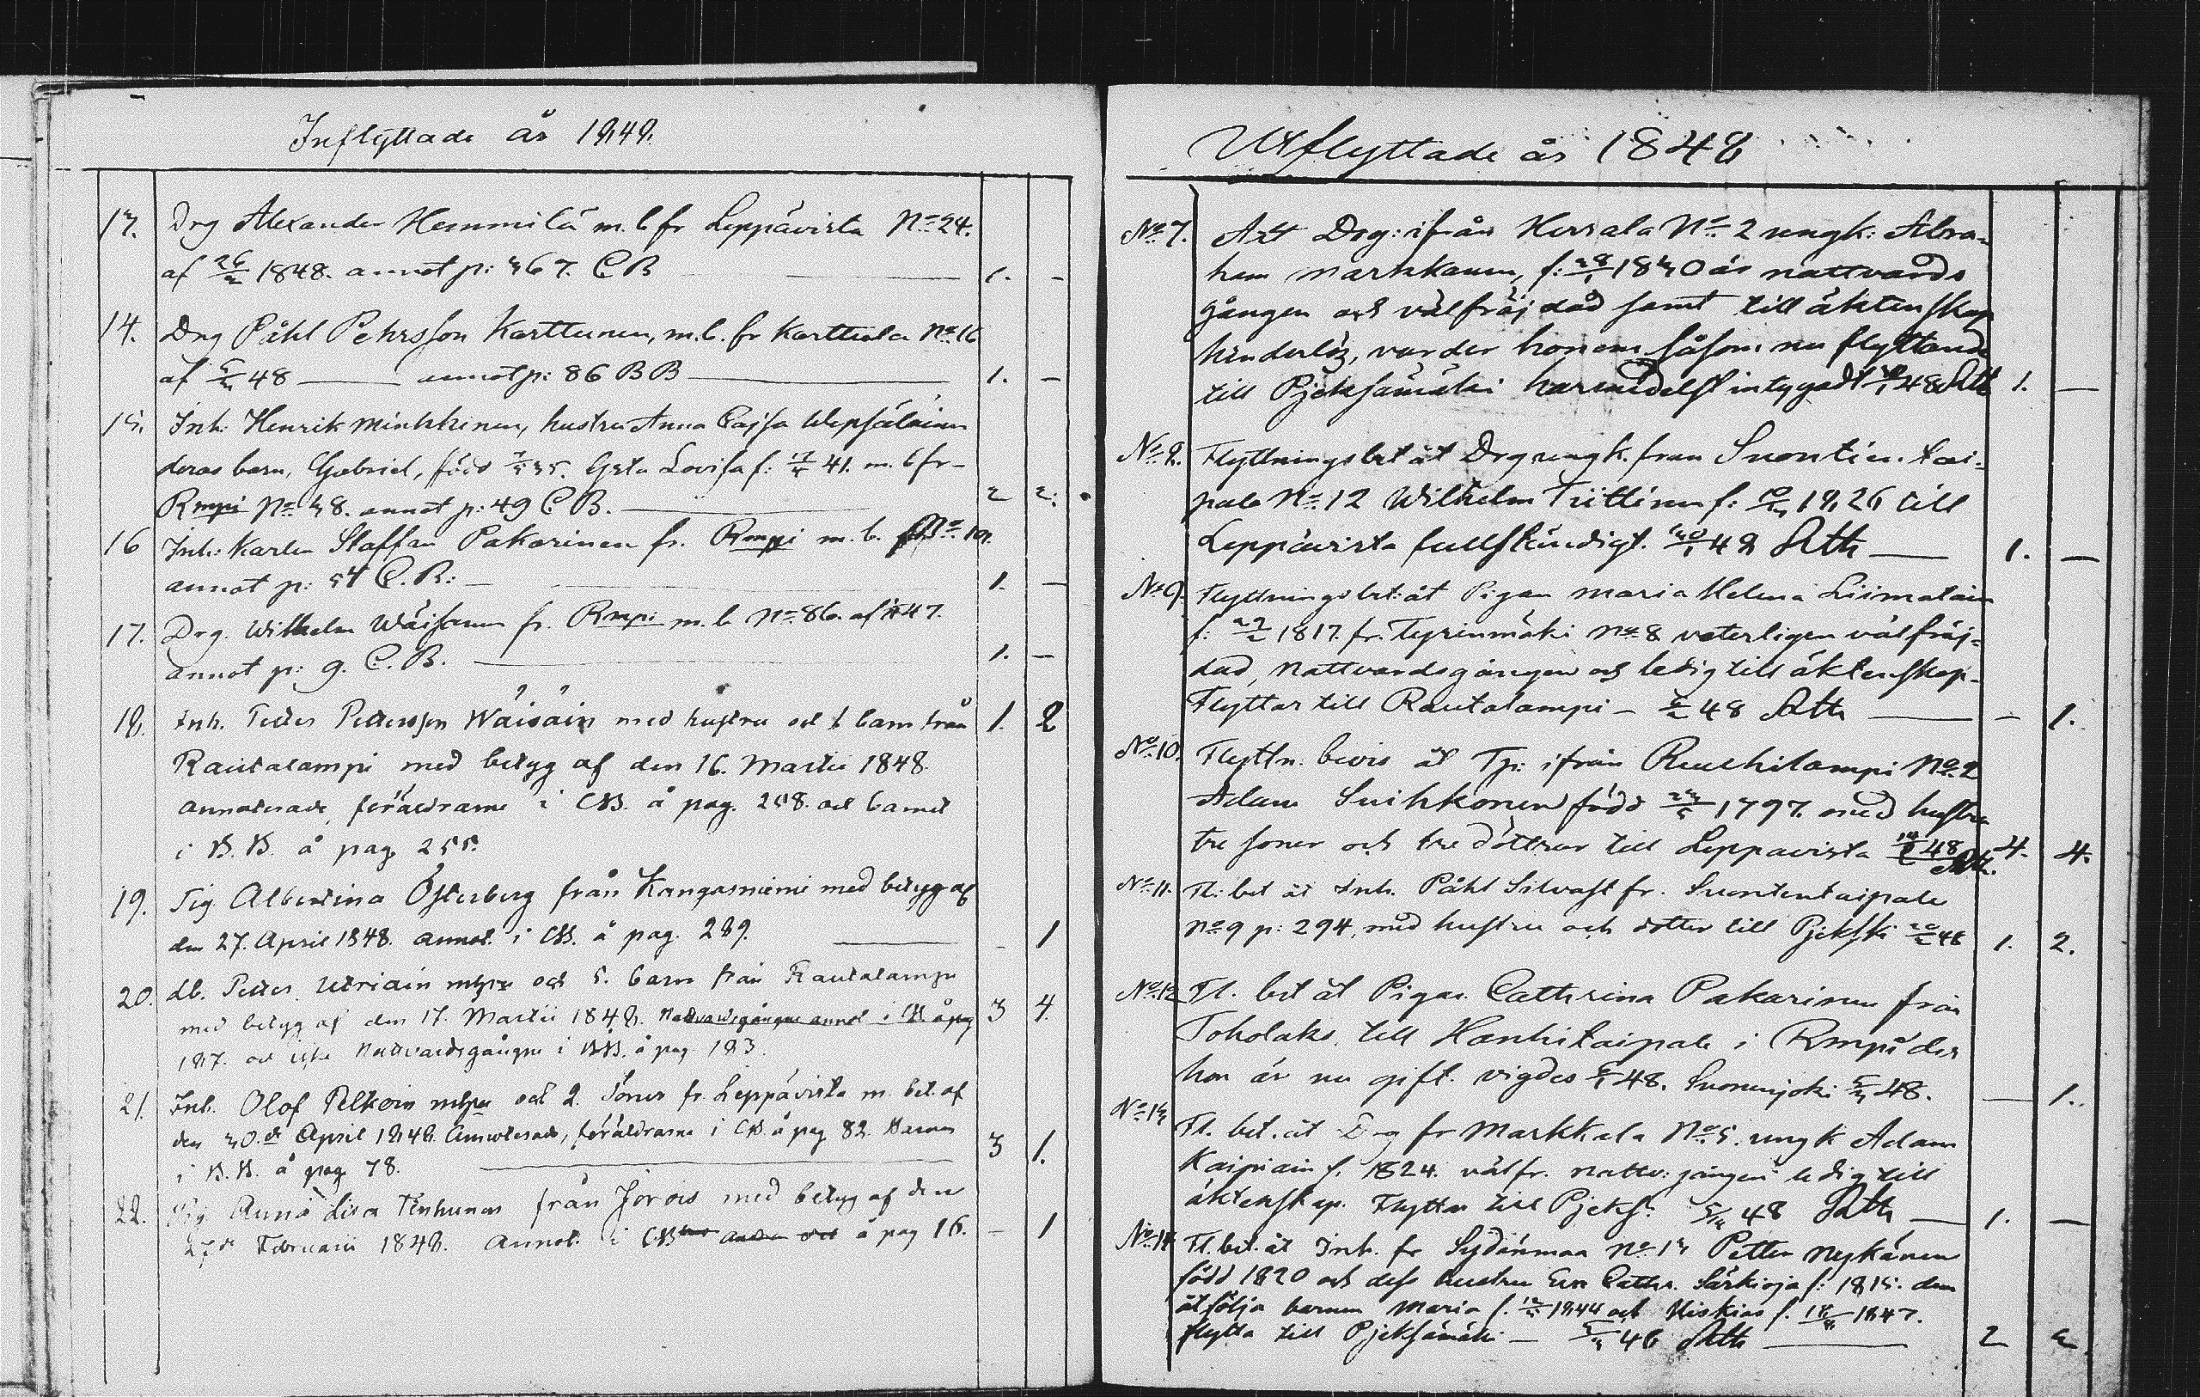 Inflyttade år 1848.
13. Drg Alexander Hemmilä m. b fr Leppävirta No 24.
af 26/2 1848. annot p: 367. C B — 1. -
14. Drg Påhl Pehrsson Karttunen, m. b. fr Karttula No 16
af 5/3 48 — annot p: 86 B B — 1. -
15. Inh: Henrik Minkkinen, hustru Anna Cajsa
deras barn, Gabriel, född 35. Greta Lovisa f: 41. m. b fr-
Rmpi No 38. annot p: 49 C B. — 2 2.
16 Inh: Karlen Staffan Pakarinen fr. Rmpi m. b.
annot p: 54 C. B: — 1. -
17. Drg. Wilhelm Wäisänen fr. Rmpi m. b No 86. af 47.
annot p: 9. C. B. — 1. -
18. Inh. Petter Pettersson Wäisäin med hustru och 1 barn från 1. 2
Rautalampi med betyg af den 16. Martii 1848.
annoterade, föräldrarne i CB. å pag. 258. och barnet
i B. B. å pag 255.
19. Pig Albertina Österberg från Kangasniemi med betyg af
den 27. April 1848. annot. i CB. å pag. 289. — - 1
20. Petter Utriain och 5. barn från Rautalampi
med betyg af den 17. Martii 1848. Nattvardsgångne annot i CB. å pag 3 4.
187. och icke Nattvardsgångne i BB. å pag 183.
21. Inh. Olof Pelkoin och 2. Söner fr. Leppävirta m. bet. af
den 30.de April 1848. Annoterade, föräldrarne i CB. å pag 82. Barnen 3 1.
i B. B. å pag 78.
22. Pig Anna Lisa Tenhunen från Jorois med betyg af den
27de Februarii 1848. Annot. i CB å pag 16. - 1
Utflyttade år 1848
No 7. Att Drg: ifrån Herrala No 2 ungk: Abra-
ham Markkanen, f: 28/1 1830 är nattvards
gången och välfräjdad samt till äktenskap
hinderlös, varder honom såsom nu flyttande
till Pjeksämäki harmedelst intygadt 48 1. —
No 8. Flyttningsbet åt Drg ungk. från Suontien tai-
pale No 12 Wilhelm Tiittinen f: 1826 till
Leppävirta fullständigt. 30/1 48 — 1. —
No 9. Flyttningsbet: åt Pigan Maria Helena Liimatain
f: 1817. fr. Tyrinmäki No 8 veterligen välfräj-
dad, Nattvardsgången och ledig till äktenskap-
Flyttar till Rautalampi - 48 — - 1.
No 10. Flyttn. bevis åt Tp: ifrån Ruuhilampi No 2
Adam Suihkonen född 1797. med hustru
tre söner och tre döttrar till Leppävirta 48 4. 4.
No 11. Fl: bet åt Inh. Påhl Silvast fr. Suontentaipale
No 9 p: 294, med hustru och dotter till Pjekski 48 1. 2.
No 12 Fl. bet åt Pigan Cathrina Pakarinen från
Toholaks. till Hankitaipale i Rmpi der
hon är nu gift. vigdes 48. Suonenjoki 48. — 1.
No 13 Fl. bet. åt Drg fr Markkala No 5. ungk Adam
Kaipiain f. 1824. välfr. nattv: gången ledig till
äktenskap. Flyttar till Pjeks: 5/3 48 — 1. —
No 14 Fl. bet. åt Inh. fr Sydänmaa No 13 Petter Nykänen
född 1820 och dess hustru Eva Cathr. Särkioja f: 1815: dem
åtfölja barnen Maria f. 1844 och Hiskias f. 1847.
flytta till Pjeksämäki — 48 — 2 2.